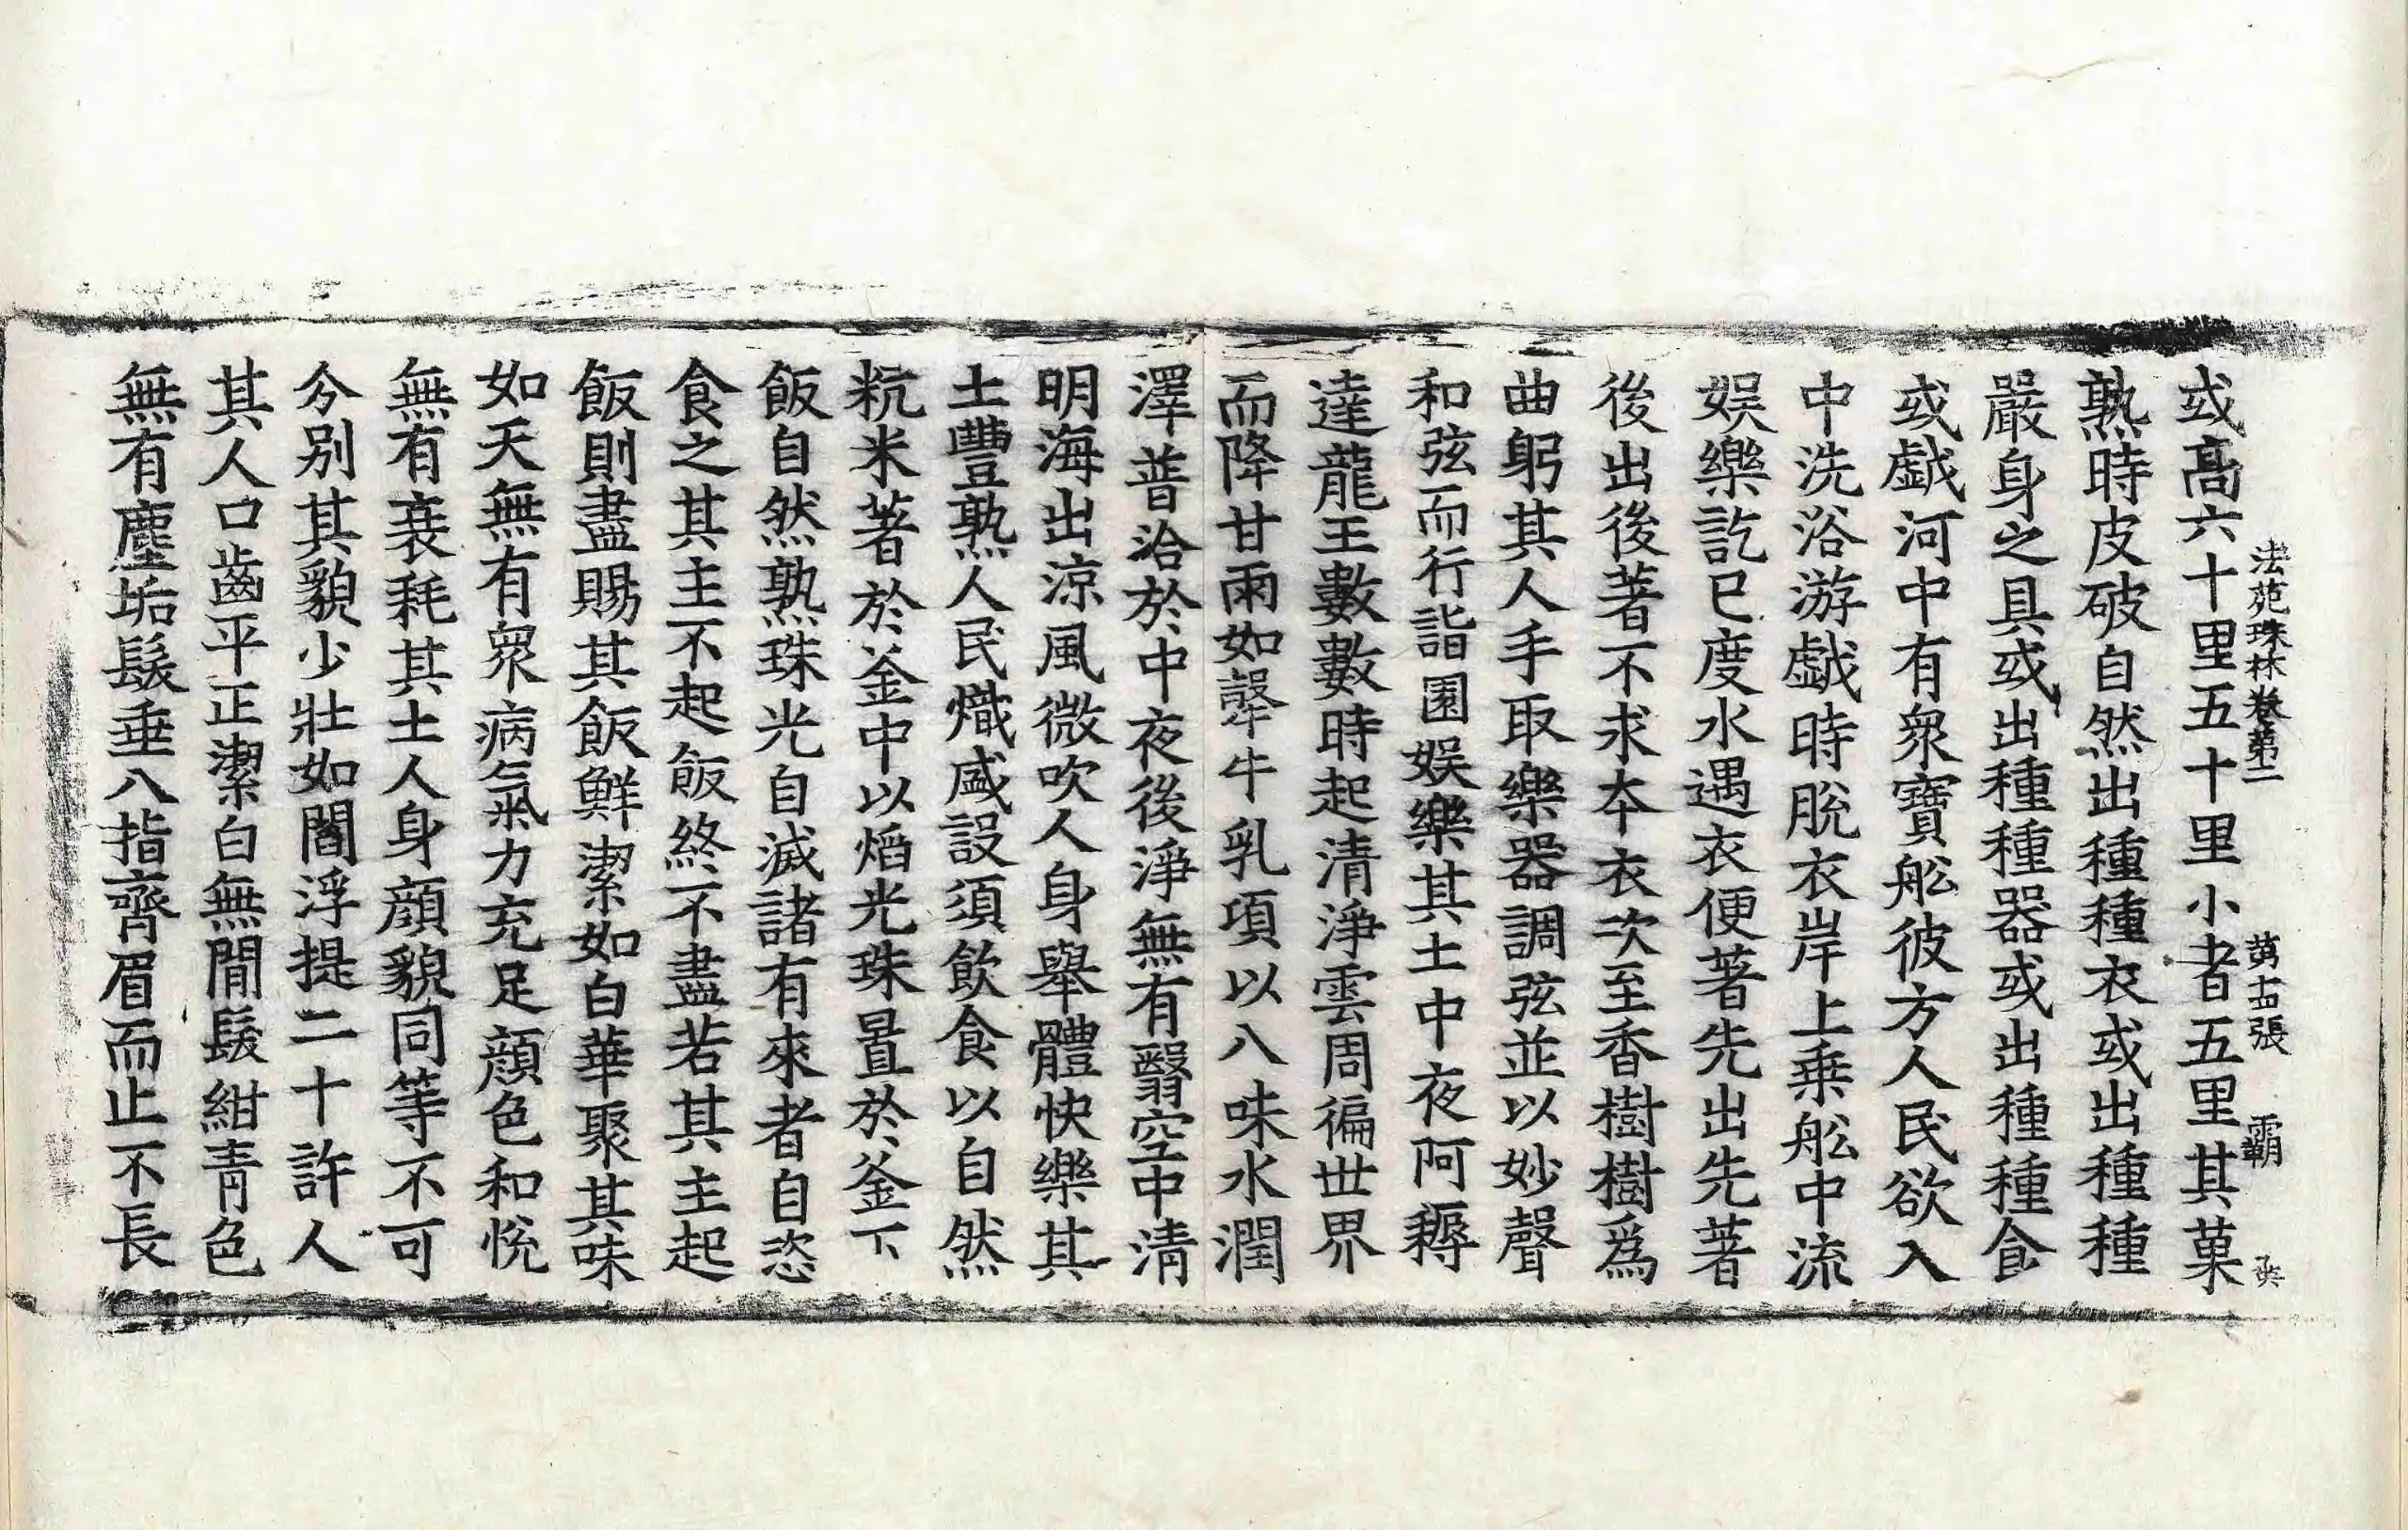 法苑珠林卷第二 第十四張 霸 英
或髙六十里五十里小者五里其菓
熟時皮破自然出種種衣或出種種
嚴身之具或出種種器或出種種食
或戱河中有衆寶舩彼方人民欲入
中洗浴游戱時脫衣岸上乗舩中流
娱樂訖已度水遇衣便著先出先著
後出後著不求夲衣次至香樹樹爲
曲躬其人手取樂器調弦並以妙聲
和弦而行詣園娱樂其土中夜阿耨
達龍王數數時起清淨雲周徧世界
而降甘雨如㲉牛乳項以八味水潤
澤普洽於中夜後淨無有翳空中清
明海出涼風微吹人身舉體快樂其
土豐熟人民熾盛設須飲食以自然
粇米著於釜中以熖光珠置於釜下
飯自然熟珠光自滅諸有來者自恣
食之其主不起飯終不盡若其主起
飯則盡賜其飯鮮潔如白華聚其味
如天無有衆病氣力充足顔色和恱
無有衰耗其土人身顔貌同等不可
分别其貌少壯如閻浮提二十許人
其人口齒平正潔白無閒髮紺青色
無有塵垢髮垂八指齊眉而止不長